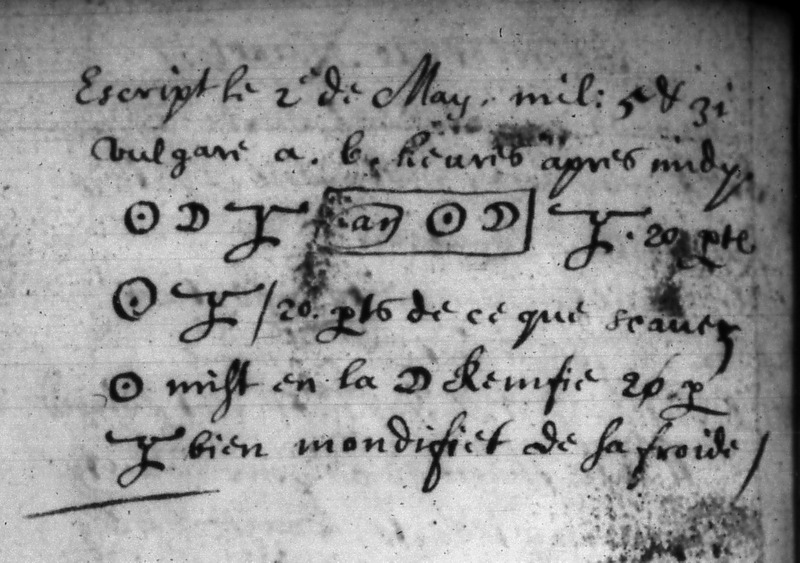 Escript le 2e de May. mil: 5 & 31
vulgare a. 6. heures apres midy.
☉ ☽ an ☉ ☽ . 20 pte
☉ / 20. pts de ce que scavez
☉ mist en la ☽ 20 p
bien mondifiet de sa froide /